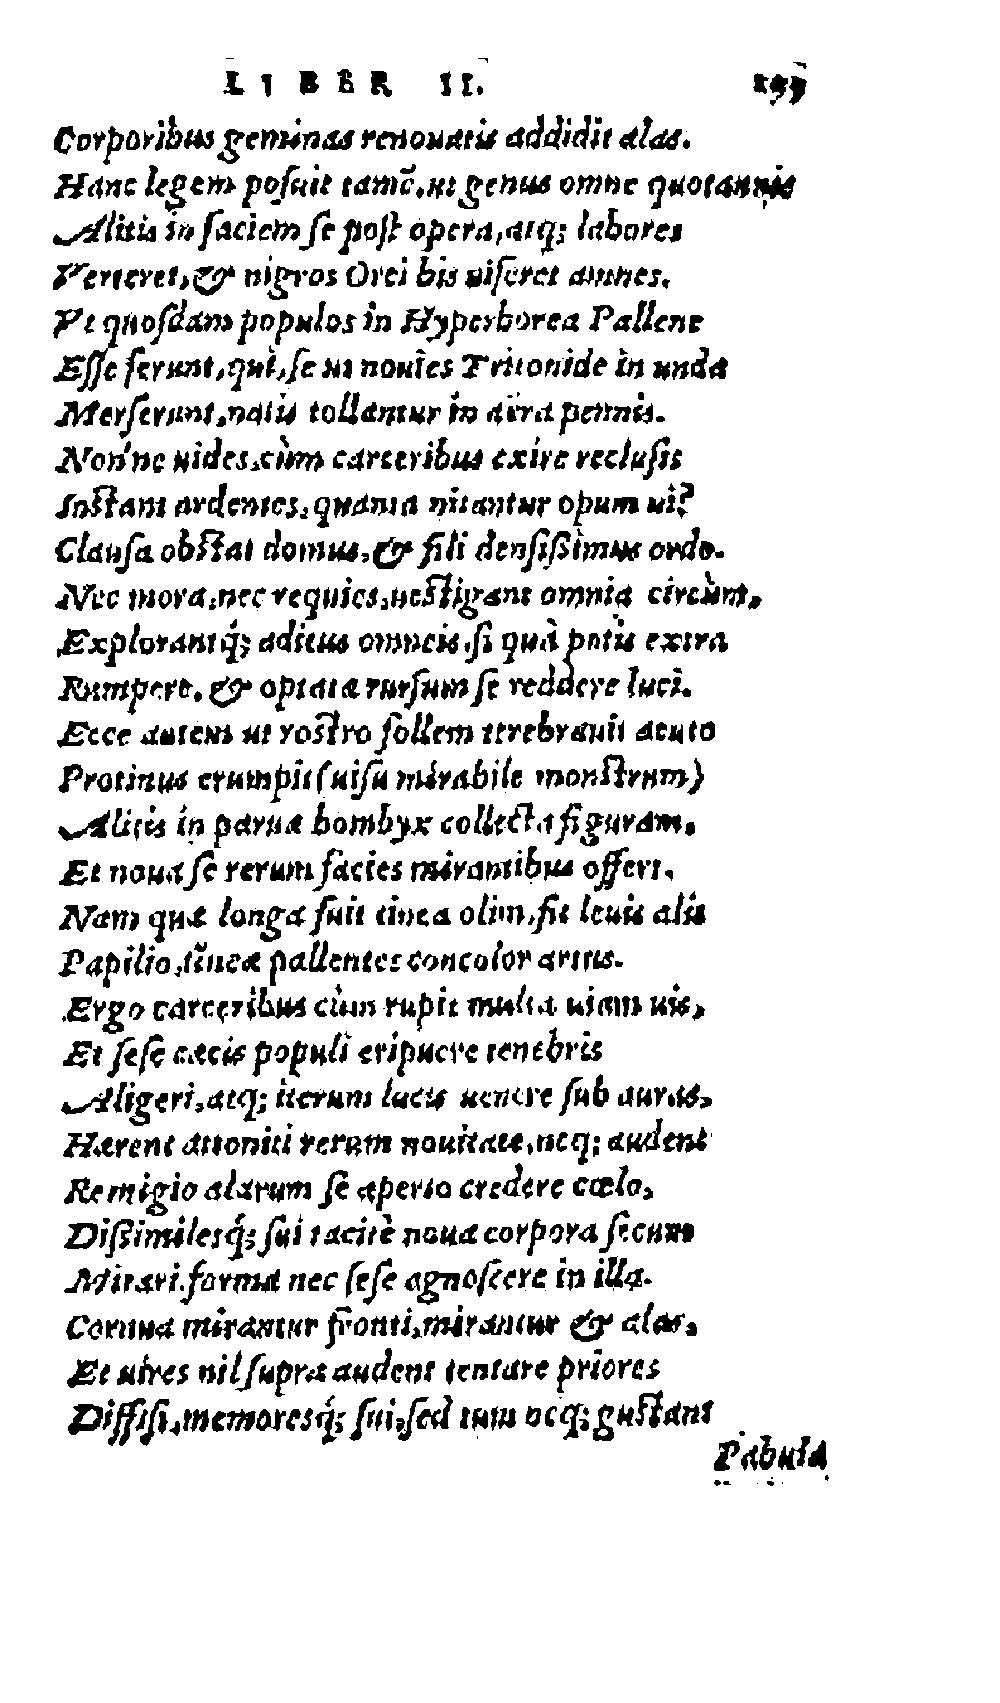 LIBER II.
Corporibus geminas renouatis addidit alas.
Hanc legem posuit tamẽ, ut genus omne quotannis
Alitis in faciem se post opera, atq; labores
Verteret, & nigros Orci bis uiseret amnes.
Vt quosdam populos in Hyperborea Pallene
Esse ferunt, qui, se ut nouies Tritonide in unda
Merserunt, natis tollantur in aëra pennis.
Non'ne uides, cùm carceribus exire reclusis
Instant ardentes, quanta nitantur opum ui?
Clausa obstat domus, & fili densißimus ordo.
Nec mora, nec requies, uestigant omnia circùm,
Explorantq́; aditus omneis, si quà potis extra
Rumpere, & optatæ rursum se reddere luci.
Ecce autem ut rostro follem terebrauit acuto
Protinus erumpit (uisu mirabile monstrum)
Alitis in paruæ bombyx collecta figuram,
Et noua se rerum facies mirantibus offert,
Nam quæ longa fuit tinea olim, fit leuis alis
Papilio, tineæ pallentes concolor artus.
Ergo carceribus cùm rupit multa uiam uis,
Et sese cæcis populi eripuere tenebris
Aligeri, atq; iterum lucis uenere sub auras,
Hærent attoniti rerum nouitate, neq; audent
Remigio alarum se aperto credere cœlo,
Dißimilesq́; sui tacitè noua corpora secum
Mirari, forma nec sese agnoscere in illa.
Cornua mirantur fronti, mirantur & alas,
Et uires nil supra audent tentare priores
Diffisi, memoresq́; sui, sed tum neq; gustant
Pabula